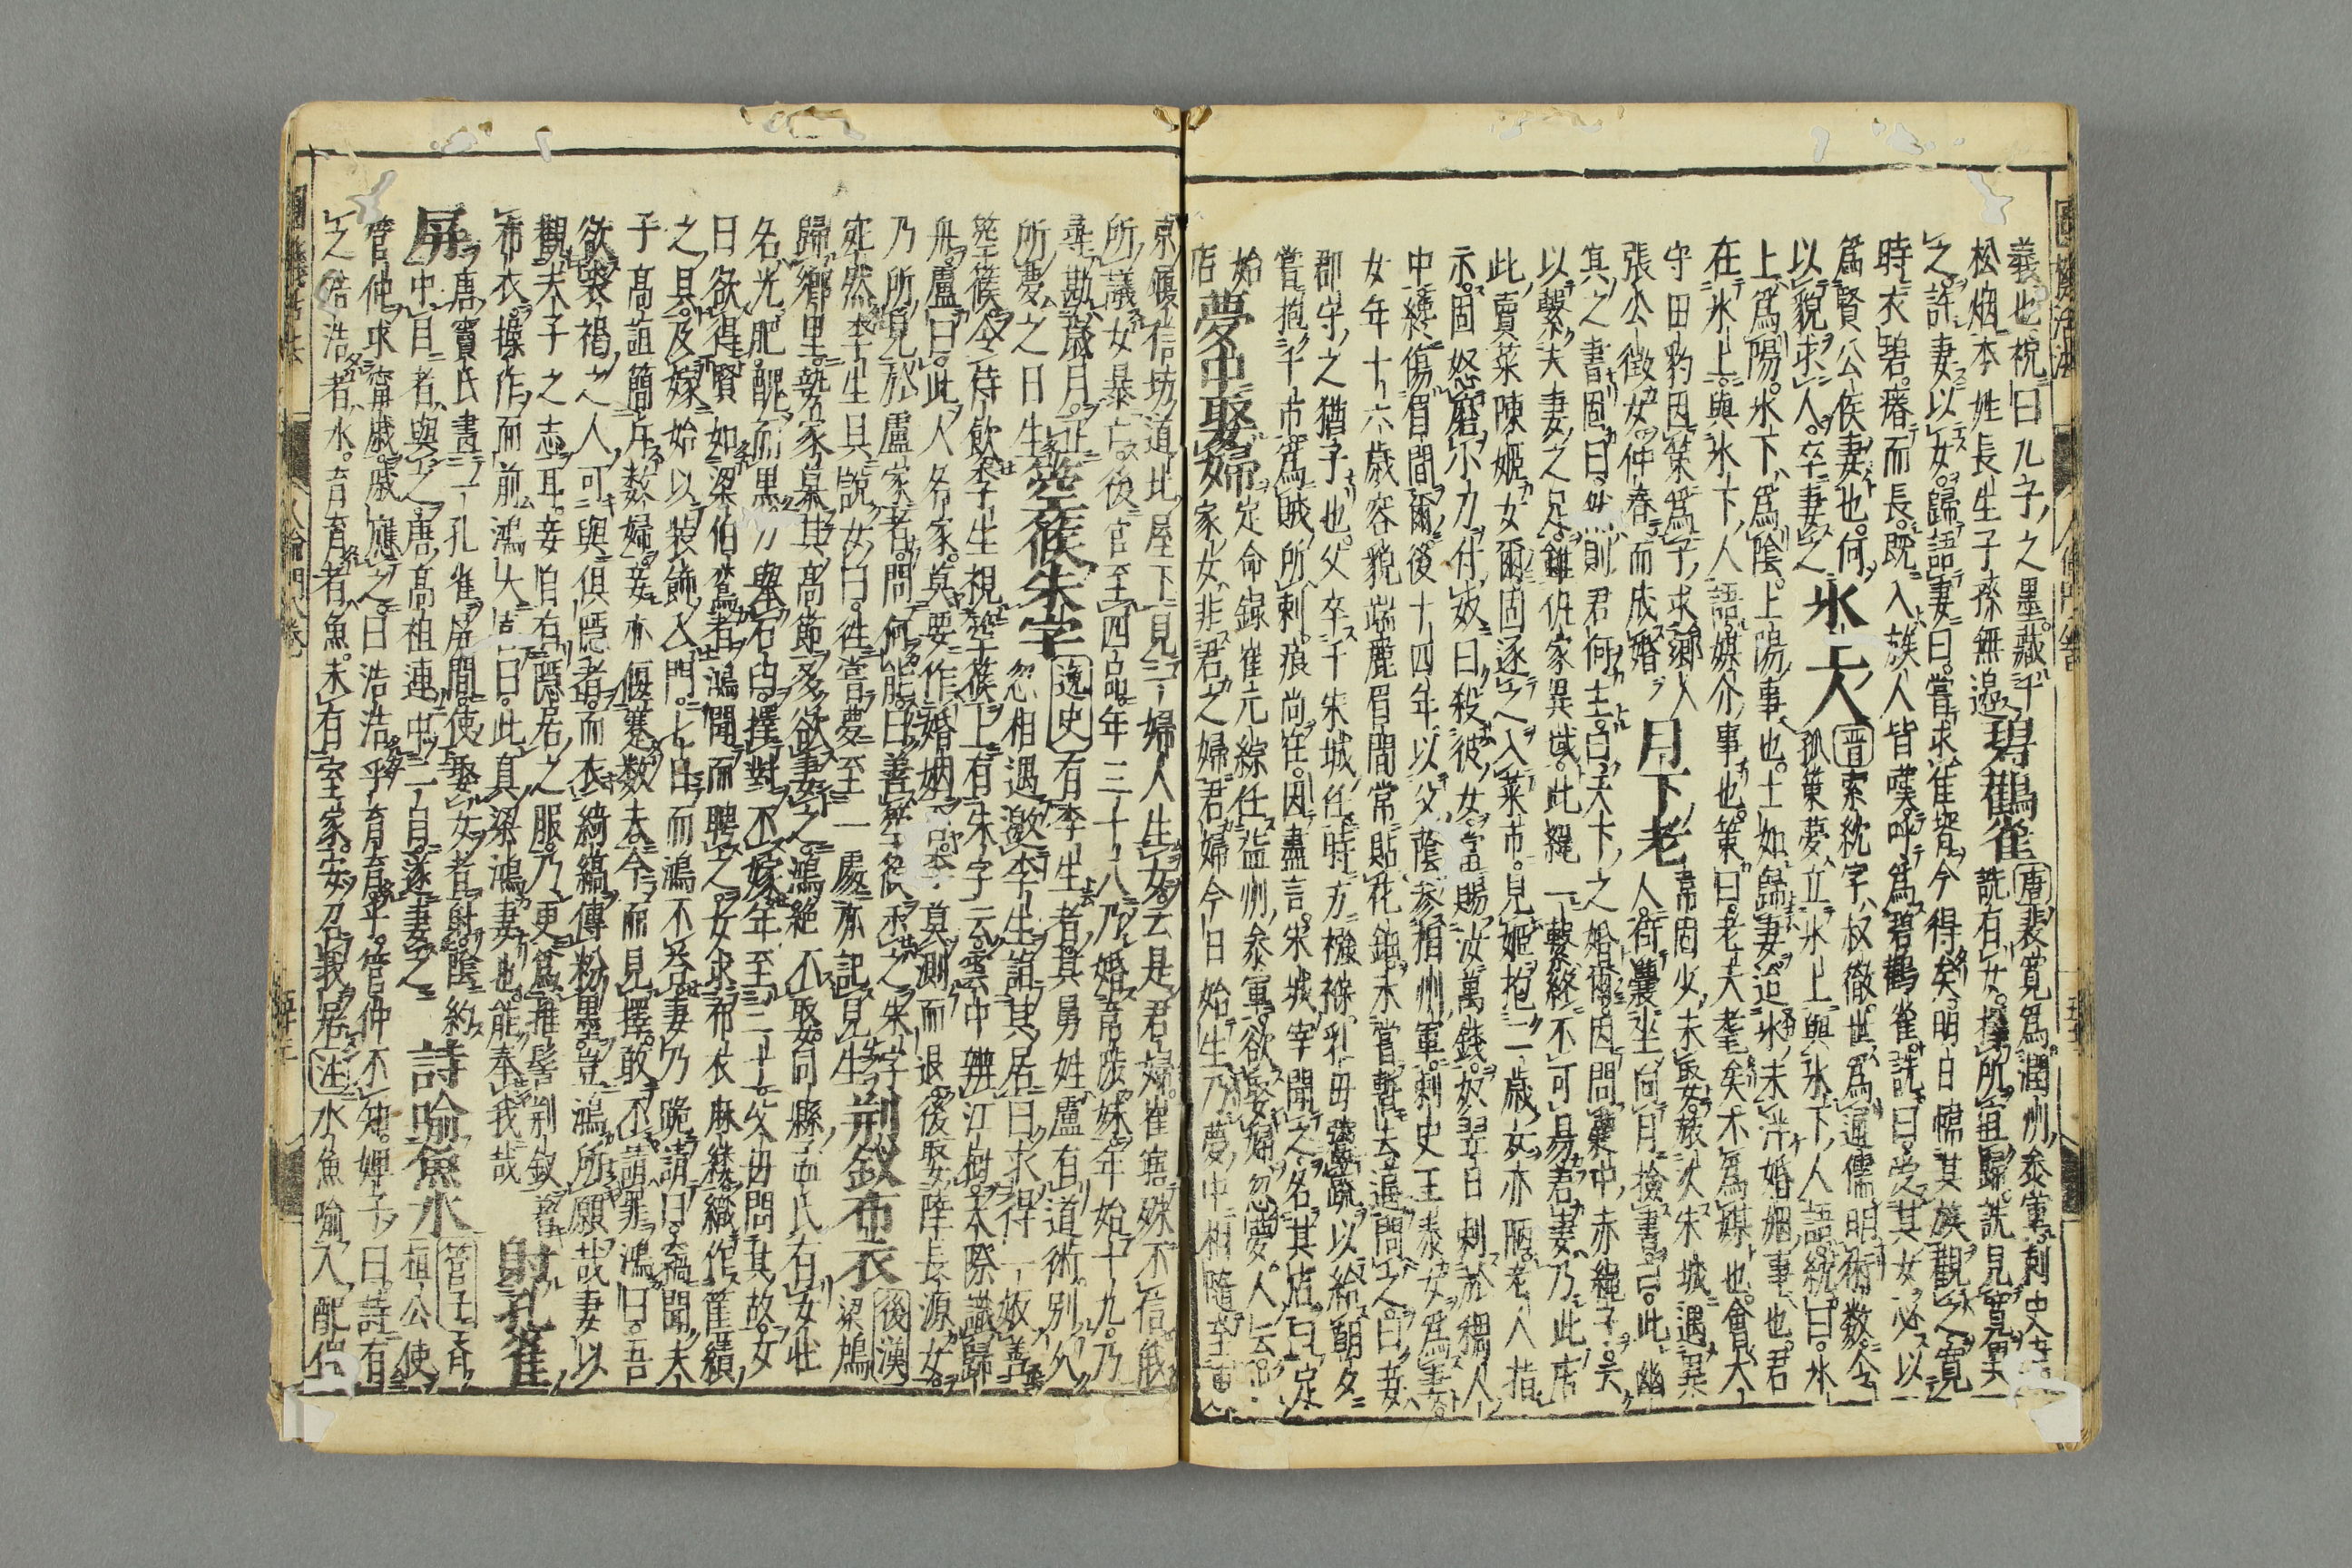 義也祝曰九子之墨藏于
碧鸛雀
唐裴寛爲潤州參軍刺史韋
松烟本姓長生子孫無邉
詵有女擇所宜歸詵見寛異
之許妻以女歸語妻曰嘗求佳壻今得矣明日幃其族觀之寛
時衣碧瘠而長既入族人皆嘆呼爲碧鸛雀詵曰愛其女必以
爲賢公侯妻也何
以貌求人卒妻之
氷上人
晋索紞字叔徹世爲通儒明術数令
孤策夢立氷上與氷下人語紞曰氷
上爲陽氷下爲陰上陽事也士如歸妻迨氷未泮婚姻事也君
在氷上與氷下人語媒介事也策曰老夫耄矣不爲媒也會太
守田豹因策爲子求郷人
張公徴女仲春而成婚
月下老人
韋固少未娶旅次宋城遇異
人荷囊坐向月撿書曰此幽
其之書固曰然則君何主曰天下之婚爾因問囊中赤繩子
以繋夫妻之足雖仇家異域此繩一繋終不可易君妻乃此店
此賣菜陳姫女爾固逐之入菜市見姫抱二歳女亦陋老人指
示固怒磨小刀付奴曰殺彼女當賜汝萬錢奴翌日刺於稠人
中纔傷眉間爾後十四年以父蔭參相州軍刺史王泰女爲妻
女年十六歳容貌端麗眉間常貼花鈿未嘗暫去逼問之曰妾
郡守之猶子也父卒于宋城任時方襁褓乳母鬻蔬以給朝夕
嘗抱于市爲賊所刺痕尚在因盡言宋城宰聞之名其店曰定
婚店
夢中娶婦
定命録崔元綜任益州參軍欲娶婦忽夢人云
家女非君之婦君婦今日始生乃夢中相隨至東
京履信坊道北屋下見一婦人生女云是君婦崔寤殊不信俄
所議女暴亡後官至四品年三十八乃婚韋陟妹年始十九乃
尋勘歳月正
所夢之日生
箜篌朱字
逸史
有李生者其舅姓盧有道術別久
忽相遇邀李生詣其居曰求得一妓善
箜篌令侍飲李生視箜篌上有朱字云雲中辨江樹天際識歸
舟盧曰此人名家莫要作婚姻否李莫測而退後娶陸長源女
乃所見於盧家者問何能曰善箜篌示之朱字
宛然李生具說女曰徃嘗夢至一處亦記見生
荊釵布衣
後漢
梁鴻
歸郷里執家慕其高節多欲妻之鴻絶不娶同縣孟氏有女狀
名光肥醜而黒力舉石臼擇對不嫁年至三十父母問其故女
曰欲得賢如梁伯鸞者鴻聞而聘之女求布衣麻縷織作筐績
之具及嫁始以裝飾入門七日而鴻不答妻乃跪請曰竊聞夫
子高誼簡斥数婦妾亦偃蹇数夫今而見擇敢不請罪鴻曰吾
欲裘褐之人可與倶隠者而衣綺縞傅粉墨豈鴻所願哉妻以
觀夫子之志耳妾自有隠居之服乃更爲椎髻荊釵著
布衣操作而前鴻大喜曰此真梁鴻妻也能奉我哉
射孔雀
屏
唐竇氏畫一孔雀屏間使娶女者射陰約
中目者與之唐高祖連中二目遂妻之
詩喩魚水
管子齊
桓公使
管仲求甯戚戚應之曰浩浩乎育育乎管仲不知婢子曰詩有
之浩浩者水育育者魚未有室家安召我居
注
水魚喩人配偶